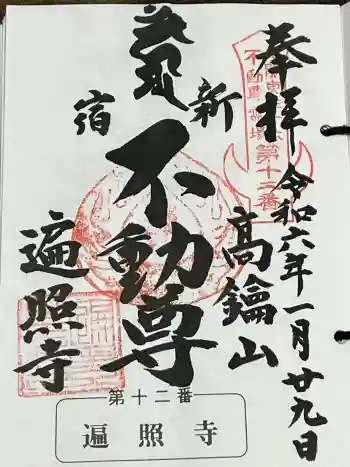 奉拝
令和六年一月廿九日
新宿
不動尊
高鑰山
遍照寺
不動尊霊場
第十二番
第十二番
遍照寺